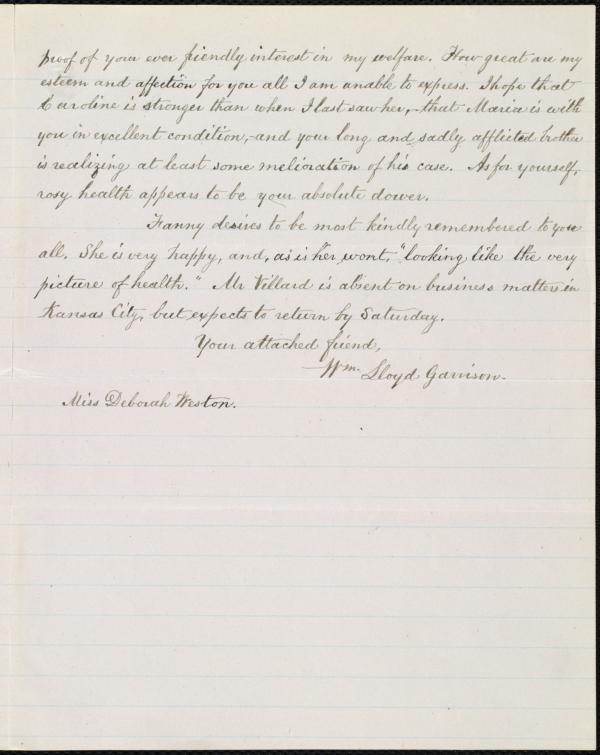 proof of your ever friendly interest in my welfare. How great are my
esteem and affection for you all I am unable to express. I hope that
Caroline is stronger than when I last saw her,—that Maria is with
you in excellent condition,—and your long and sadly afflicted brother
is realizing at least some melioration of his case. As for yourself,
rosy health appears to be your absolute dower.
Fanny desires to be most kindly remembered to you
all. She is very happy, and, as is her wont, "looking like the very
picture of health." Mr Villard is absent on business matters in
Kansas City, but expects to return by Saturday.
Your attached friend,
Wm. Lloyd Garrison.
Miss Deborah Weston.